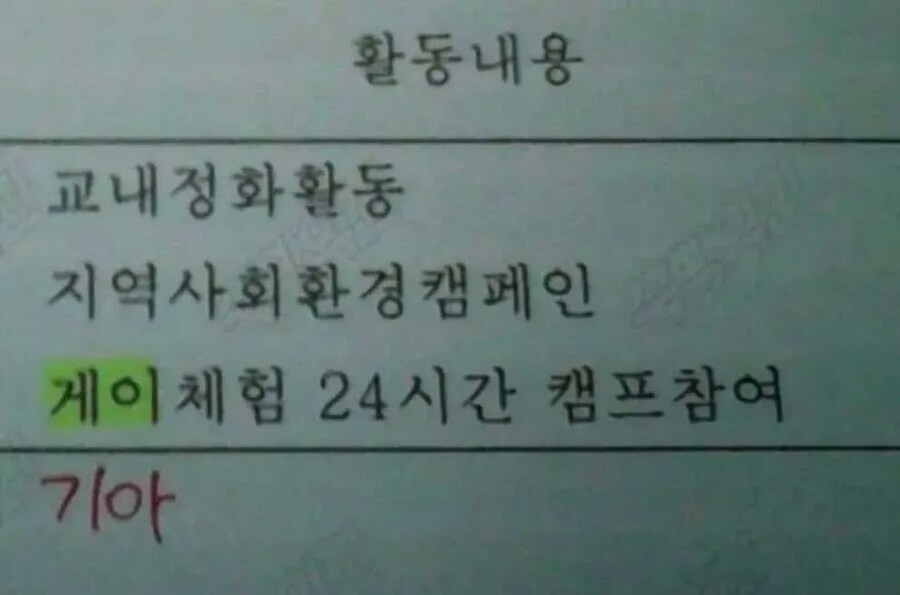 활동내용
교내정화활동
지역사회환경캠페인
게이체험 24시간 캠프참여
기아